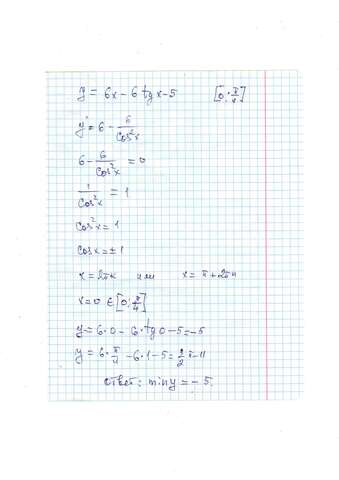 y = 6x - 6 tg x - 5 [0; π/4]
y' = 6 - 6/cos²x
6 - 6/cos²x = 0
1/cos²x = 1
cos²x = 1
cos x = ±1
x = 2πk или x = π + 2πn
x = 0 ∈ [0; π/4]
y = 6·0 - 6·tg 0 - 5 = -5
y = 6·π/4 - 6·1 - 5 = 3/2 π - 11
ответ: min y = -5.